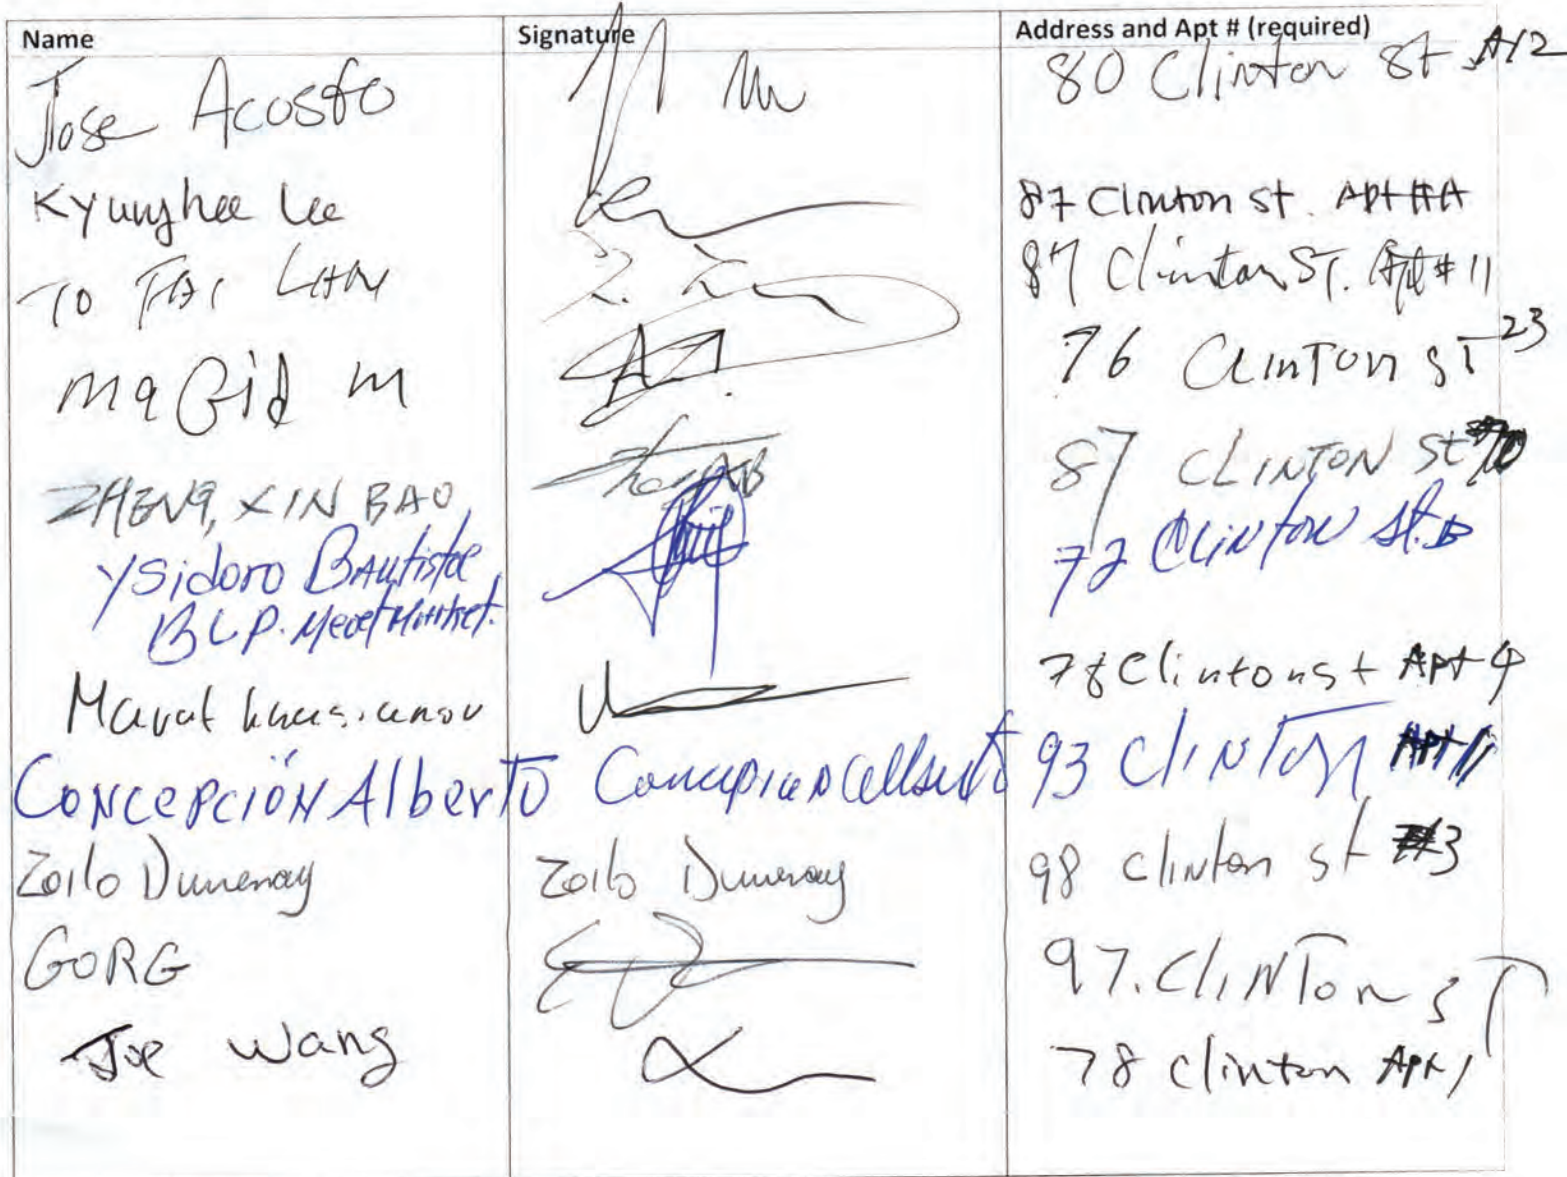 Name Signature Address and Apt # (required)
Jose Acosta 80 Clinton St A12
Kyunghee Lee 87 Clinton st. Apt #A
TO TAI LAM 87 Clinton ST. Apt # 11
Magid M 76 CLINTON ST 23
ZHENG, XIN BAO 87 CLINTON St #10
Ysidoro BAutista 72 Clinton St. B
BLP. Meat Market.
Marat 78 Clinton st Apt 4
CONCEPCIÓN Alberto Concepcion Alberto 93 CLINTON Apt 11
Zoilo Dumenay Zoilo Dumenay 98 clinton st #3
GORG 97. CLINTON ST
Joe Wang 78 clinton Apt 1